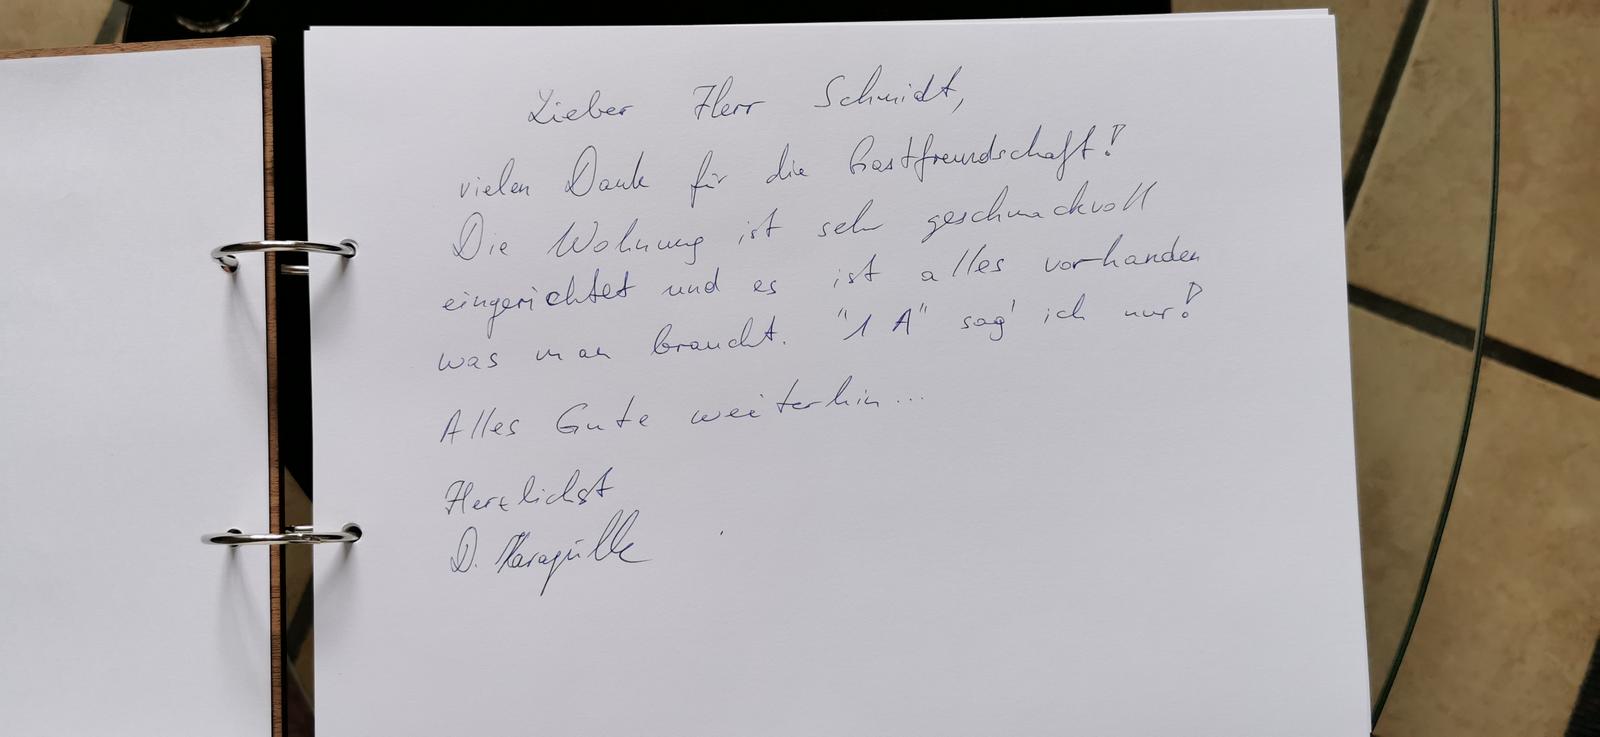 Lieber Herr Schmidt,
vielen Dank für die Gastfreundschaft!
Die Wohnung ist sehr geschmackvoll
eingerichtet und es ist alles vorhanden
was man braucht. "1 A" sag' ich nur!
Alles Gute weiterhin...
Herzlichst
D.